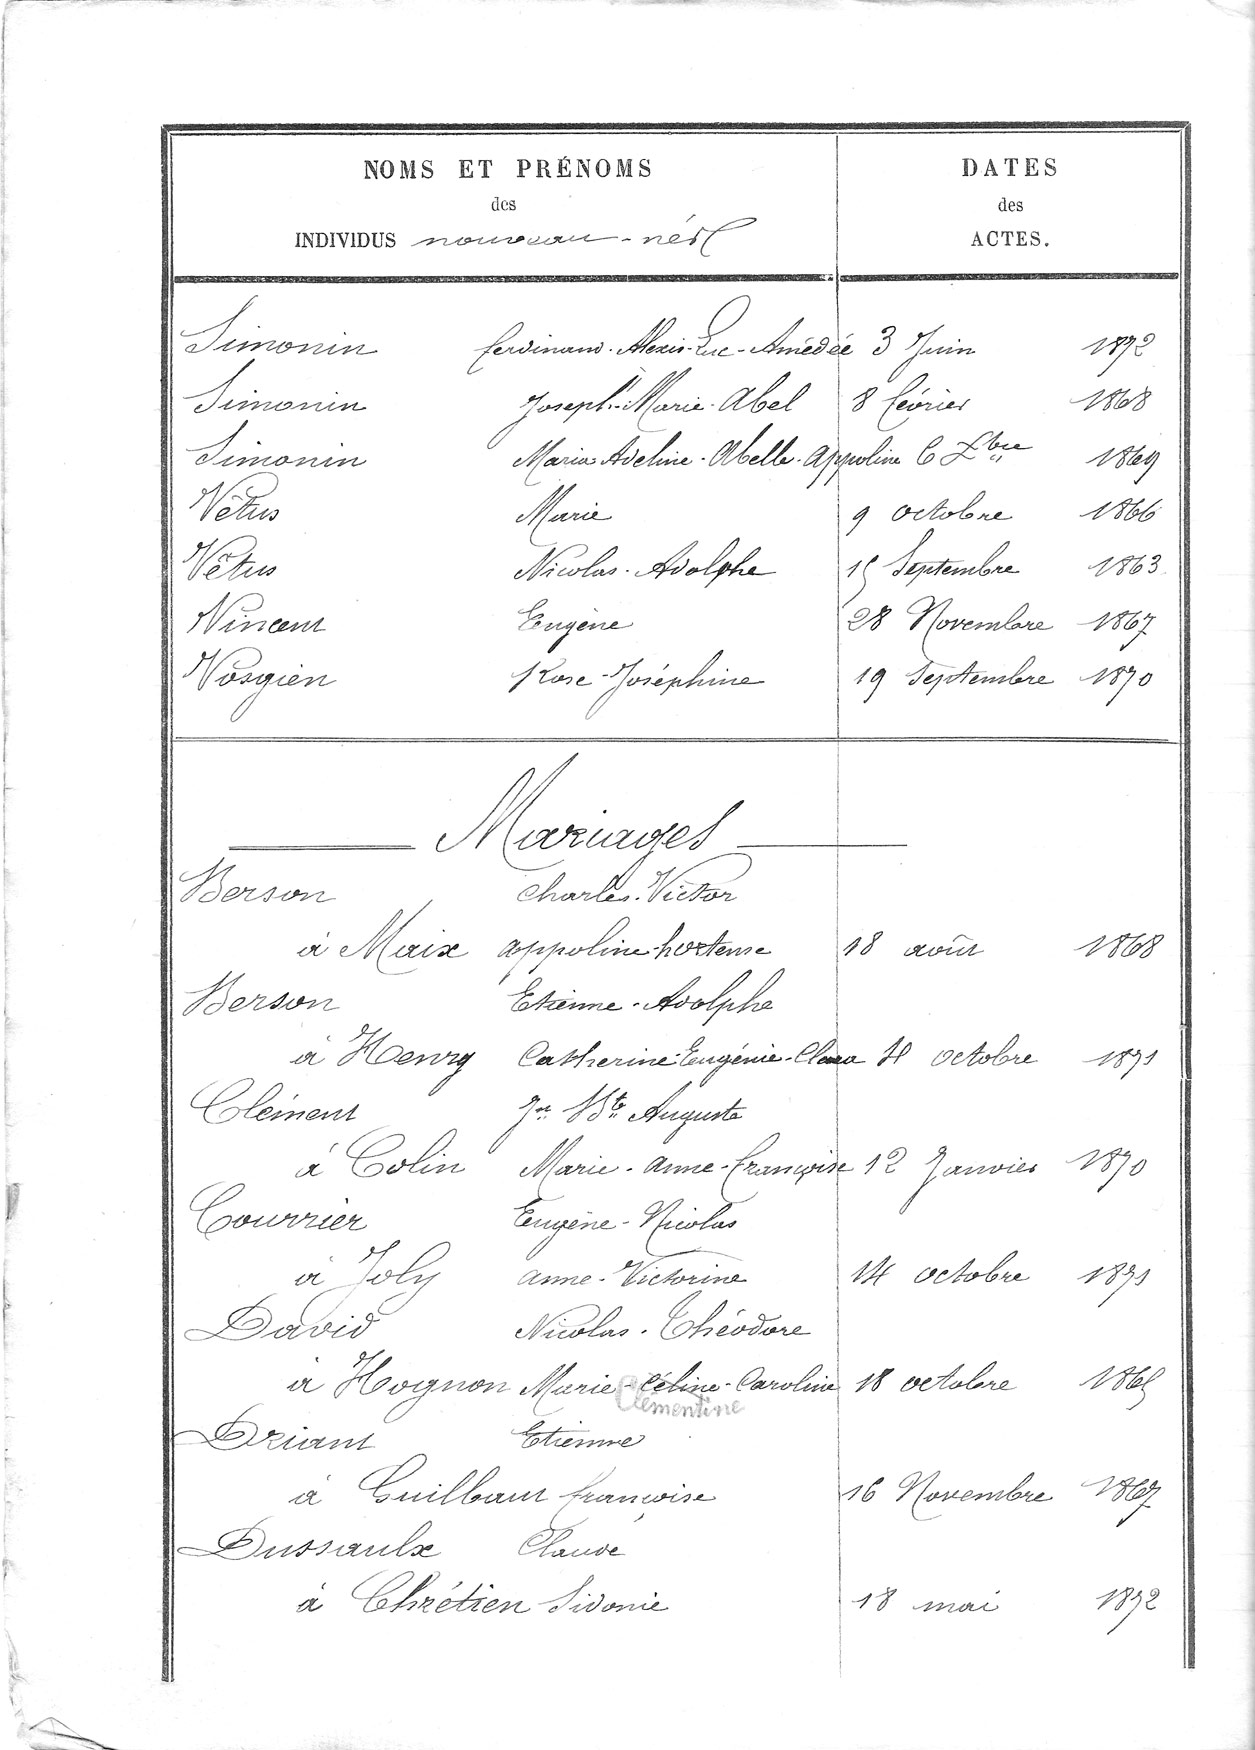 NOMS ET PRÉNOMS
des
INDIVIDUS nouveau-nés
DATES
des
ACTES.
Simonin Ferdinand-Alexis-Luc-Amédée 3 Juin 1872
Simonin Joseph-Marie-Abel 8 février 1868
Simonin Maria-Adeline-Abelle-Appoline 6 Xbre 1869
Vêtus Marie 9 octobre 1866
Vêtus Nicolas-Adolphe 15 Septembre 1863
Vincent Eugène 28 Novembre 1867
Vosgien Rose-Joséphine 19 Septembre 1870
Mariages
Berson Charles-Victor
à Maix appoline-hortense 18 août 1868
Berson Etienne-Adolphe
à Henry Catherine-Eugénie-Clara 4 octobre 1871
Clément Jn Bte Auguste
à Colin Marie-anne-françoise 12 Janvier 1870
Courrier Eugène-Nicolas
à Joly anne-Victorine 14 octobre 1871
David Nicolas-Théodore
à Hognon Marie-Céline-Caroline 18 octobre 1865
Clémentine
Driant Etienne
à Guilbaut françoise 16 Novembre 1867
Dussaulx Claude
à Chrétien Sidonie 18 mai 1872